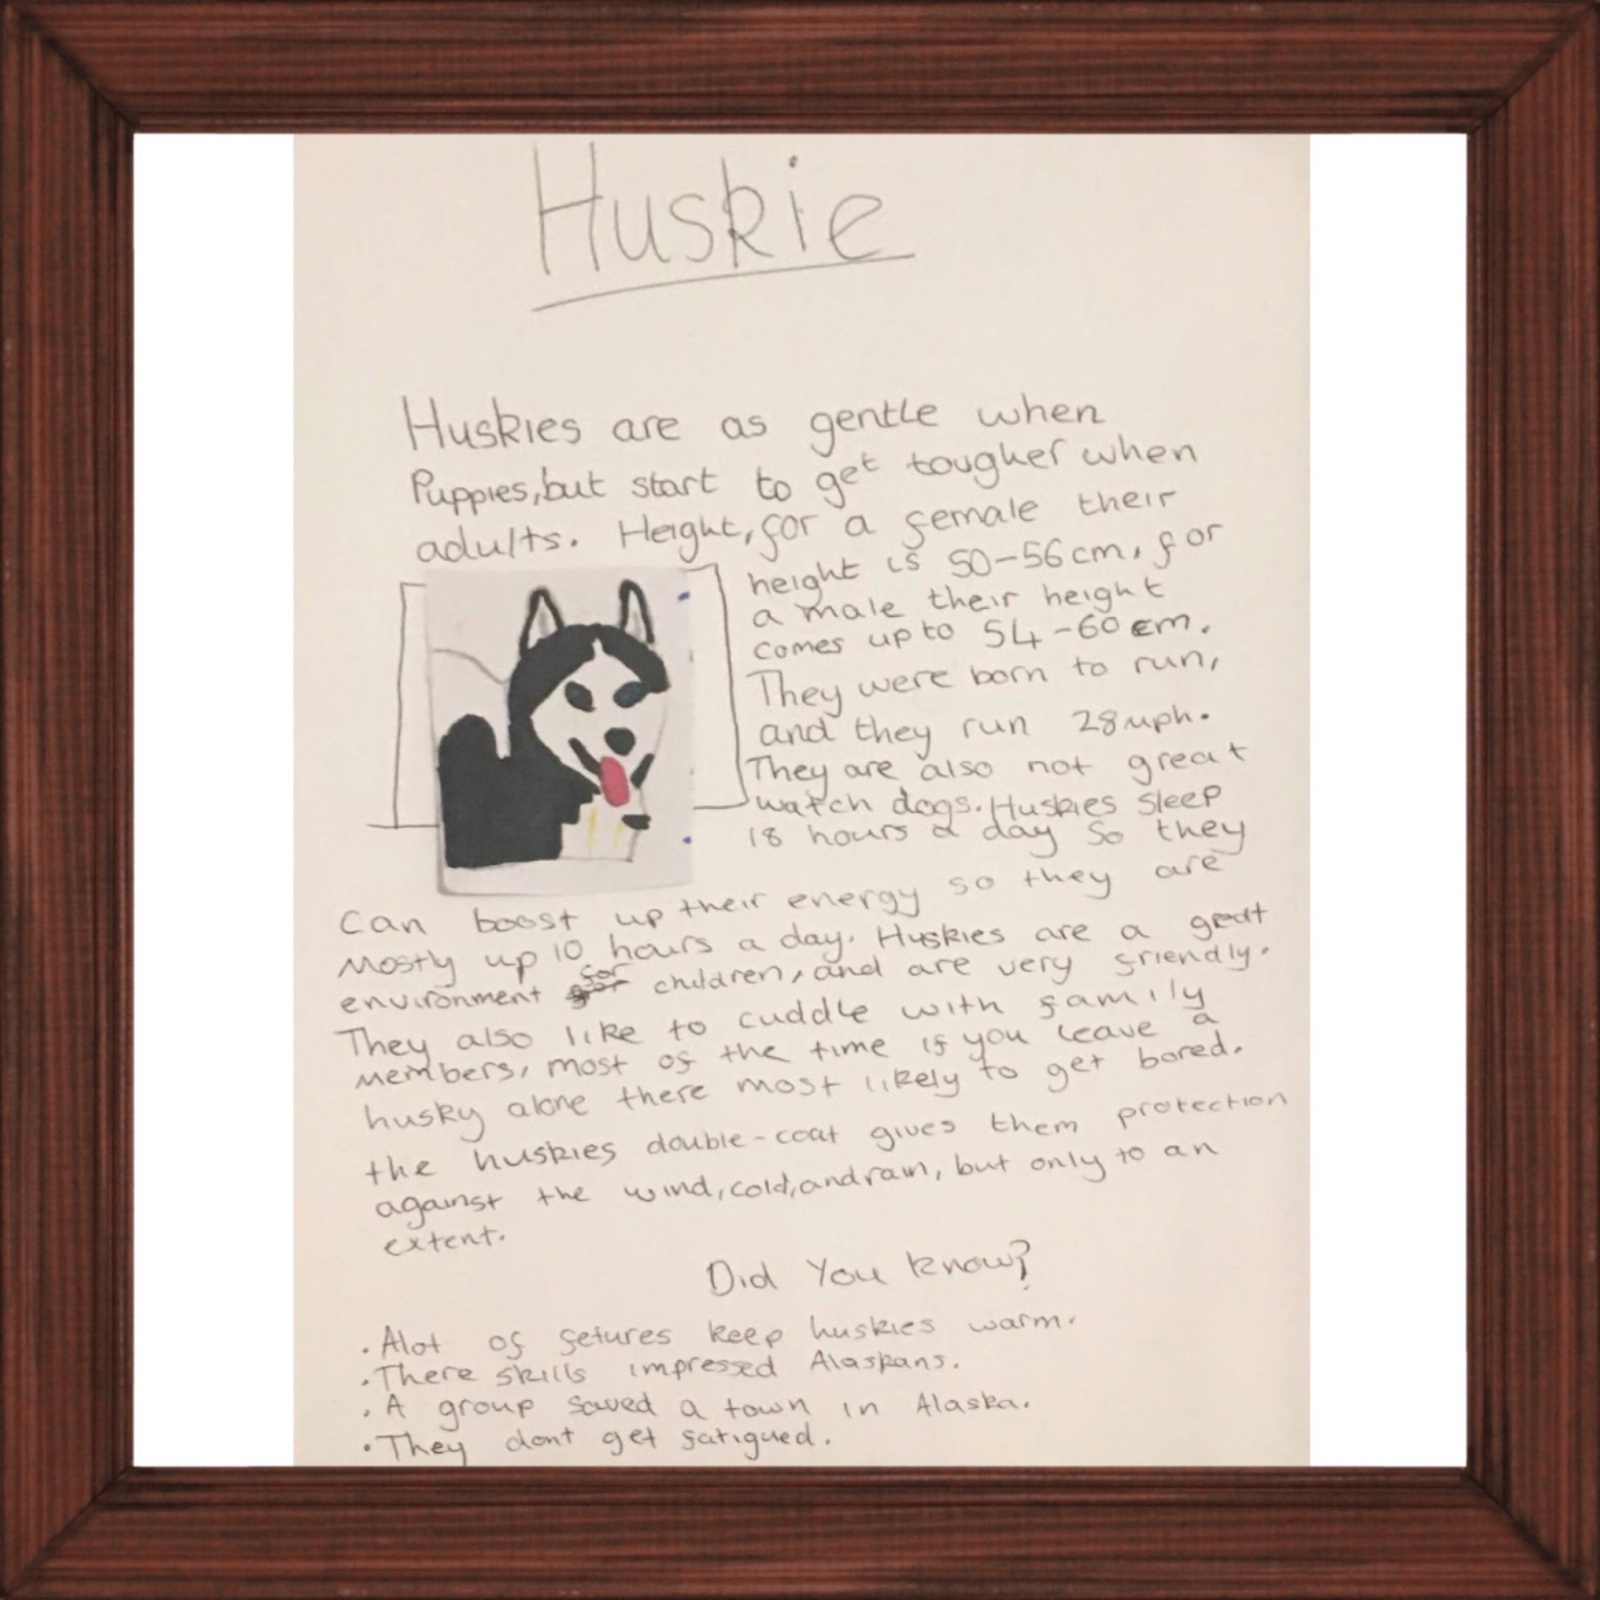 Huskie
Huskies are as gentle when
Puppies, but start to get tougher when
adults. Height, for a female their
height is 50-56cm, for
a male their height
comes up to 54-60cm.
They were born to run,
and they run 28mph.
They are also not great
watch dogs. Huskies sleep
18 hours a day so they
can boost up their energy so they are
mostly up 10 hours a day. Huskies are a great
environment for children, and are very friendly.
They also like to cuddle with family
members, most of the time if you leave a
husky alone there most likely to get bored.
the huskies double-coat gives them protection
against the wind, cold, and rain, but only to an
extent.
Did You know?
• Alot of fetures keep huskies warm.
• There skills impressed Alaskans.
• A group saved a town in Alaska.
• They dont get fatigued.